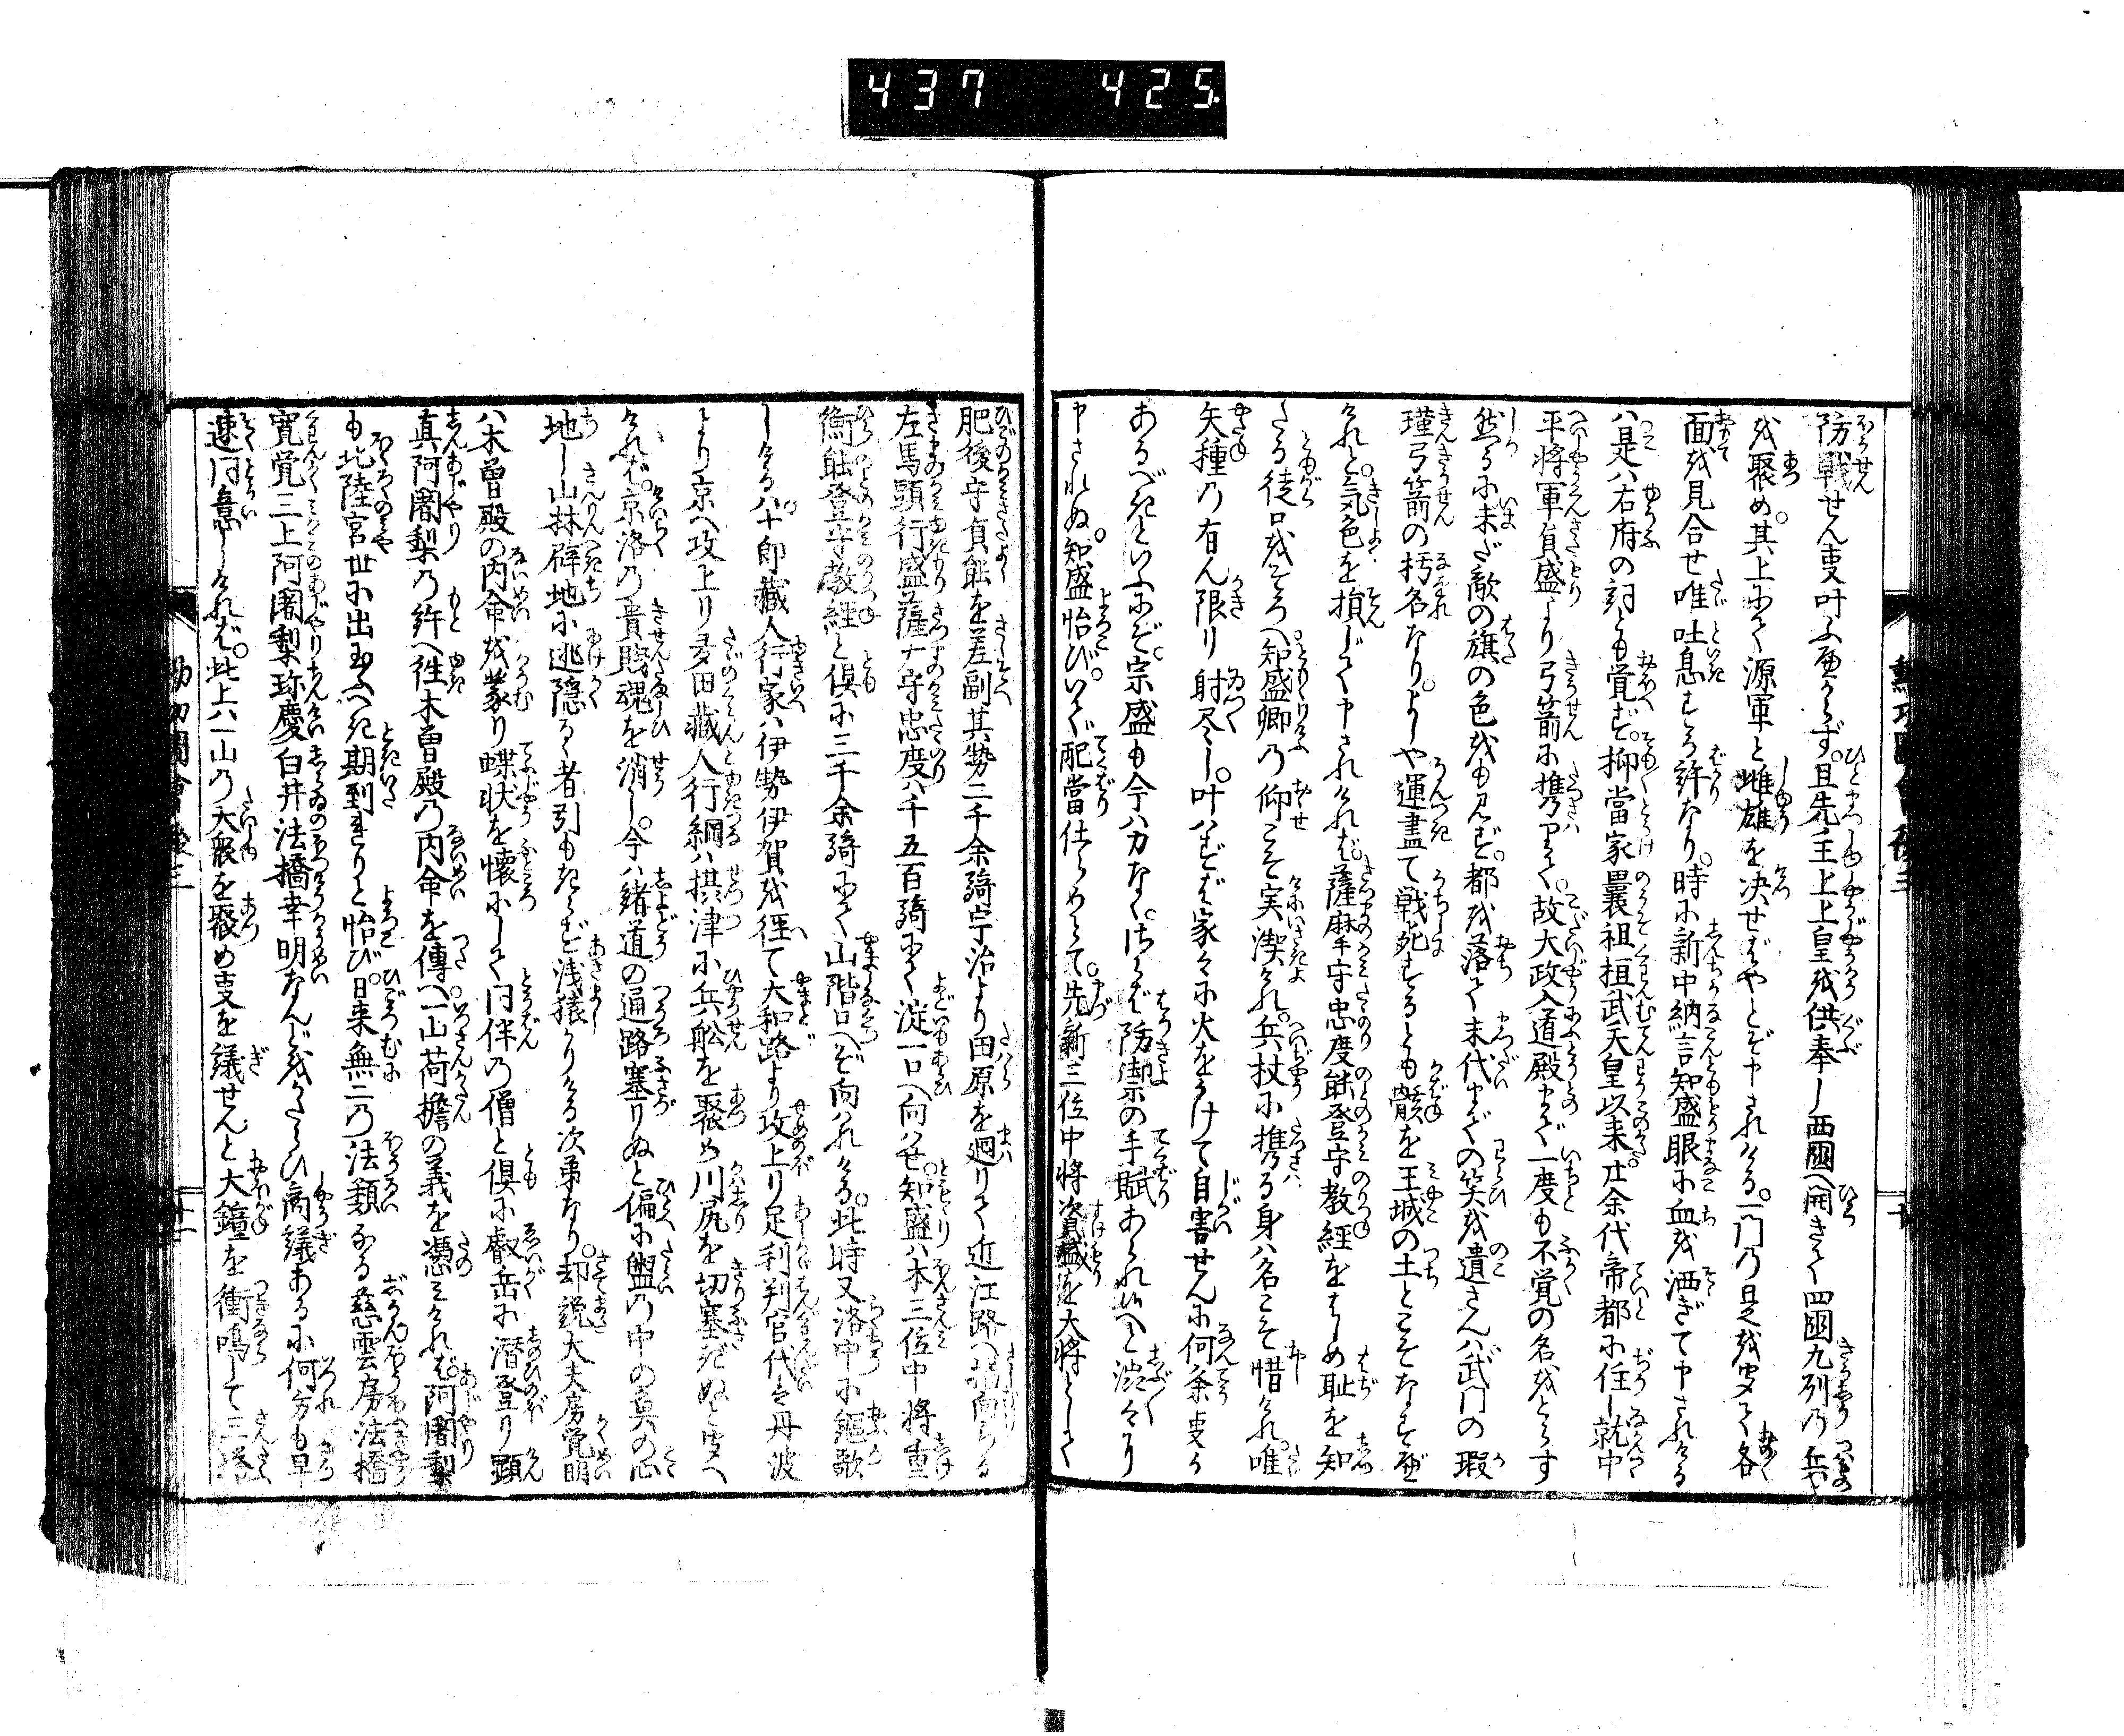 437 425
防戦せん叓叶ふ庭からず。且先主上上皇を供奉し西國へ開きて四國九列乃兵
を聚め。其上にて源軍と雌雄を决せばやとぞ申されける。一門乃是を聞て各
面を見合せ唯吐息する許なり。時に新中納言知盛眼に血を洒ぎて申されける
ハ是ハ右府の詞とも覚ず。抑當家曩祖桓武天皇以来廿余代帝都に住し就中
平将軍貞盛より弓箭に携りて。故大政入道殿まで一度も不覚の名をとらす
然るに未だ敵の旗の色をも見ず。都を落て末代までの笑を遺さんハ武門の瑕
瑾弓箭の朽名なり。よしや運盡て戦死するとも骸を王城の土とこそなすべ
けれと。気色を損じて申されけれバ。薩摩守忠度能登守教経をはじめ耻を知
たる徒口をそろへ知盛卿乃仰こそ実潔けれ。兵杖に携る身ハ名こそ惜けれ。唯
矢種乃有ん限り射尽し。叶ハずバ家々に火をかけて自害せんに何条叓か
あるべきといふにぞ。宗盛も今ハ力なく。さらバ防禦の手賦あられ候へと澁々
申されぬ。知盛怡び。いそぎ配當仕らんとて。先新三位中将資盛を大将として
肥後守貞能を差副其勢二千余騎宇治より田原を廻りて近江路へ向らる
左馬頭行盛薩广守忠度ハ千五百騎にて淀一口へ向ハせ。知盛ハ本三位中将重
衡能登守教経と倶に三千余騎にて山階口へぞ向ハれける。此時又洛中に謳歌
しけるハ。十郎藏人行家ハ伊勢伊賀を径て大和路より攻上り足利判官代ハ丹波
より京へ攻上り多田藏人行綱ハ摂津に兵舩を聚め川尻を切塞ぎぬと聞へ
けれバ。京洛乃貴賎魂を消し。今ハ緒道の通路塞りぬと偏に盥乃中の莫の心
地し山林僻地に逃隠るゝ者引もきらず浅猿かりける次第なり。却説大夫房覚明
ハ木曽殿の内命を蒙り蝶状を懐にして同伴乃僧と倶に叡岳に潜登り顕
真阿闍梨乃許へ徃木曽殿乃内命を傳へ一山荷擔の義を憑みけれバ。阿闍梨
も北陸宮世に出玉ふべき期到きりと怡び。日来無二乃法類なる慈雲房法橋
寛覚三上阿闍梨珍慶白井法橋幸明なんどをかたらひ商議あるに何方も早
速同意しけれバ。此上ハ一山乃大衆を聚め叓を議せんと大鐘を衝鳴して三塔